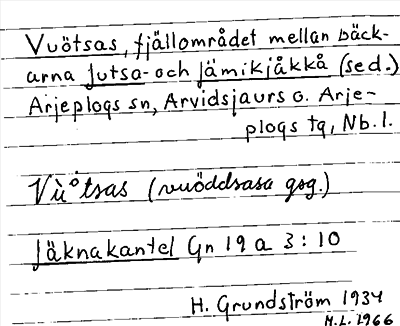 Vuötsas, fjällområdet mellan bäck-
arna Jutsa- och Jämikjåkkå (se d.)
Arjeplogs sn, Arvidsjaurs o. Arje-
plogs tg, Nb. l.
Vùːtsas (vuöddsasa gsg.)
Jäknakantel Gn 19 a 3:10
H. Grundström 1934
M.L. 1966